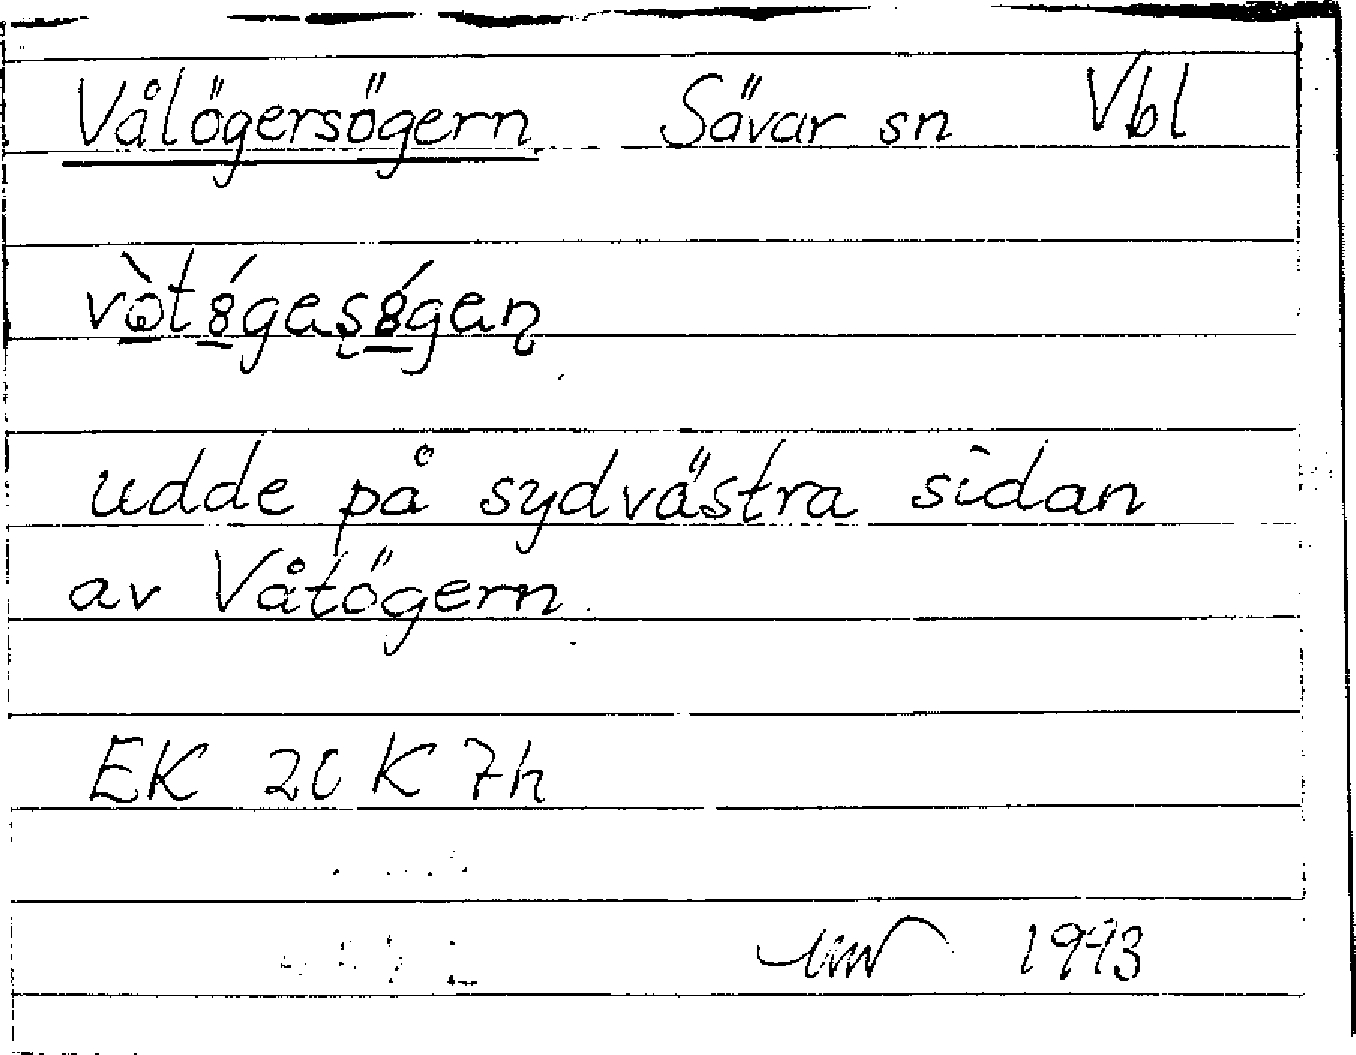 Vålögersögern Sävar sn Vbl
udde på sydvästra sidan
av Våtögern
EK 20 K 7h
1993